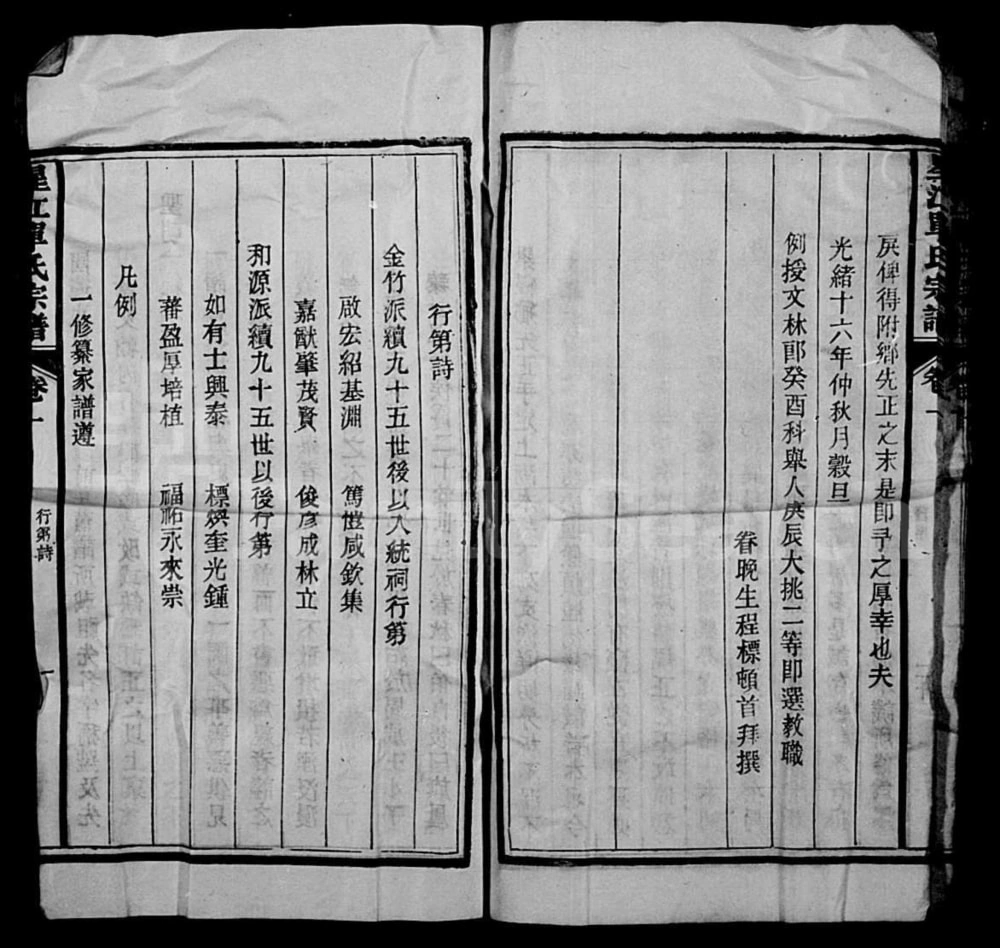 星江單氏宗譜
卷一
戾俾得附鄉先正之末是即予之厚幸也夫
光緒十六年仲秋月穀旦
例授文林郎癸酉科舉人庚辰大挑二等即選教職
眷晚生程標頓首拜撰
行第詩
金竹派續九十五世後以入統祠行第
啟宏紹基淵 篤愷咸欽集
嘉猷肇茂賢 俊彥成林立
和源派續九十五世以後行第
如有士興泰 標煥奎光鍾
蕃盈厚培植 福祐永來崇
凡例
一修纂家譜遵
星江單氏宗譜
卷一
行第詩
一